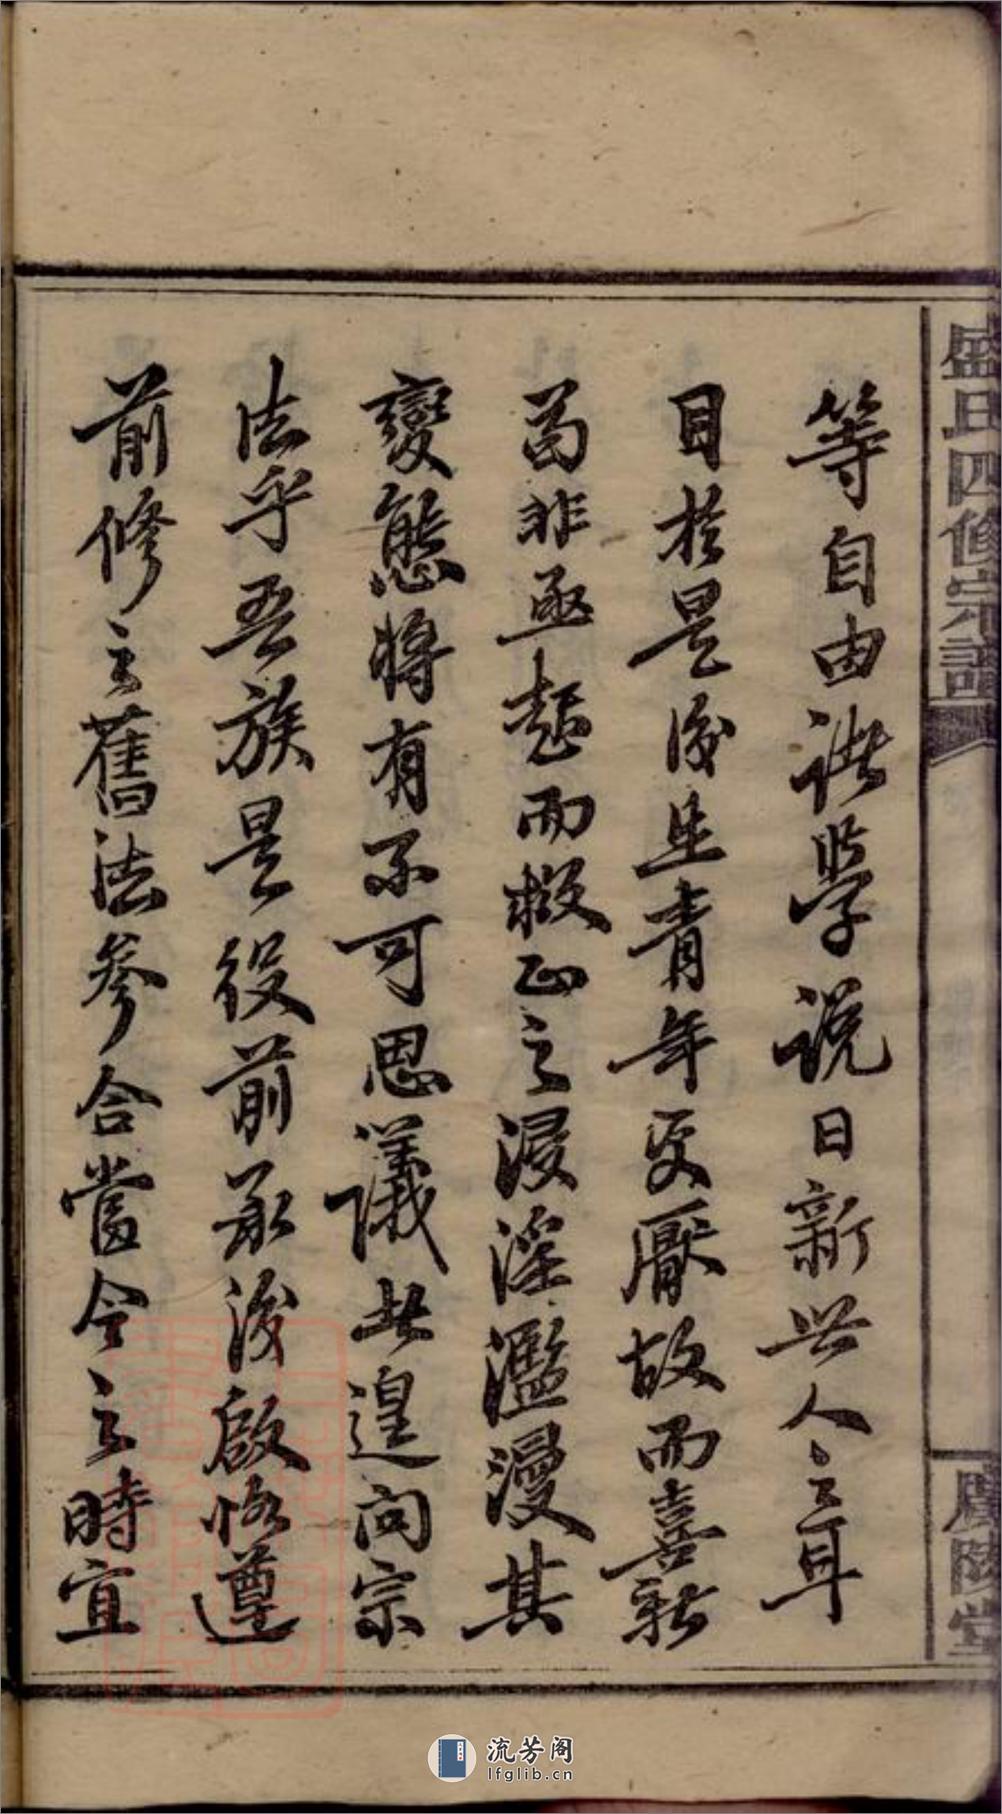 盛氏四修宗譜
廣陵堂
等自由諸學說日新興人之耳
目於是後生青年受厭故而喜新
苟非亟起而救正之浸淫濫漫其
變態將有不可思議者遑问宗
法乎吾族是役前承後啟恪遵
前修之舊法參合當今之時宜
流芳阁
lfglib.cn